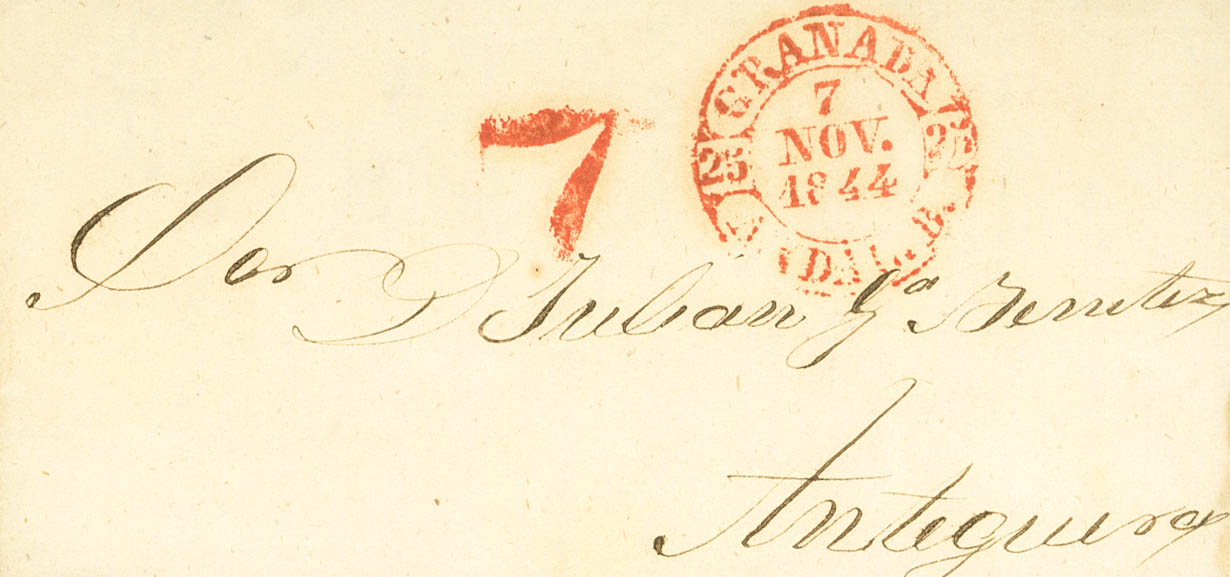 GRANADA
25 7 25
NOV.
1844
ANDAL. B.
7
Sor D Julian Ga Benitez
Antequera